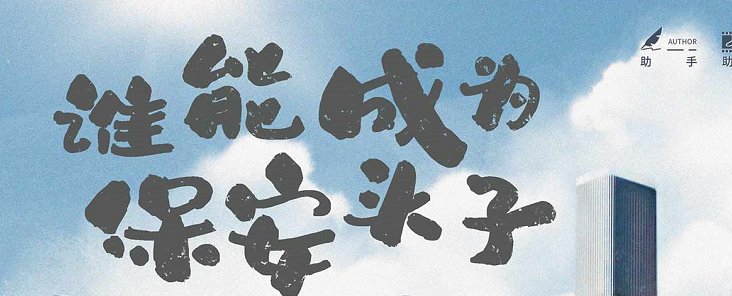 谁能成为
保安头子
AUTHOR
助 手
助